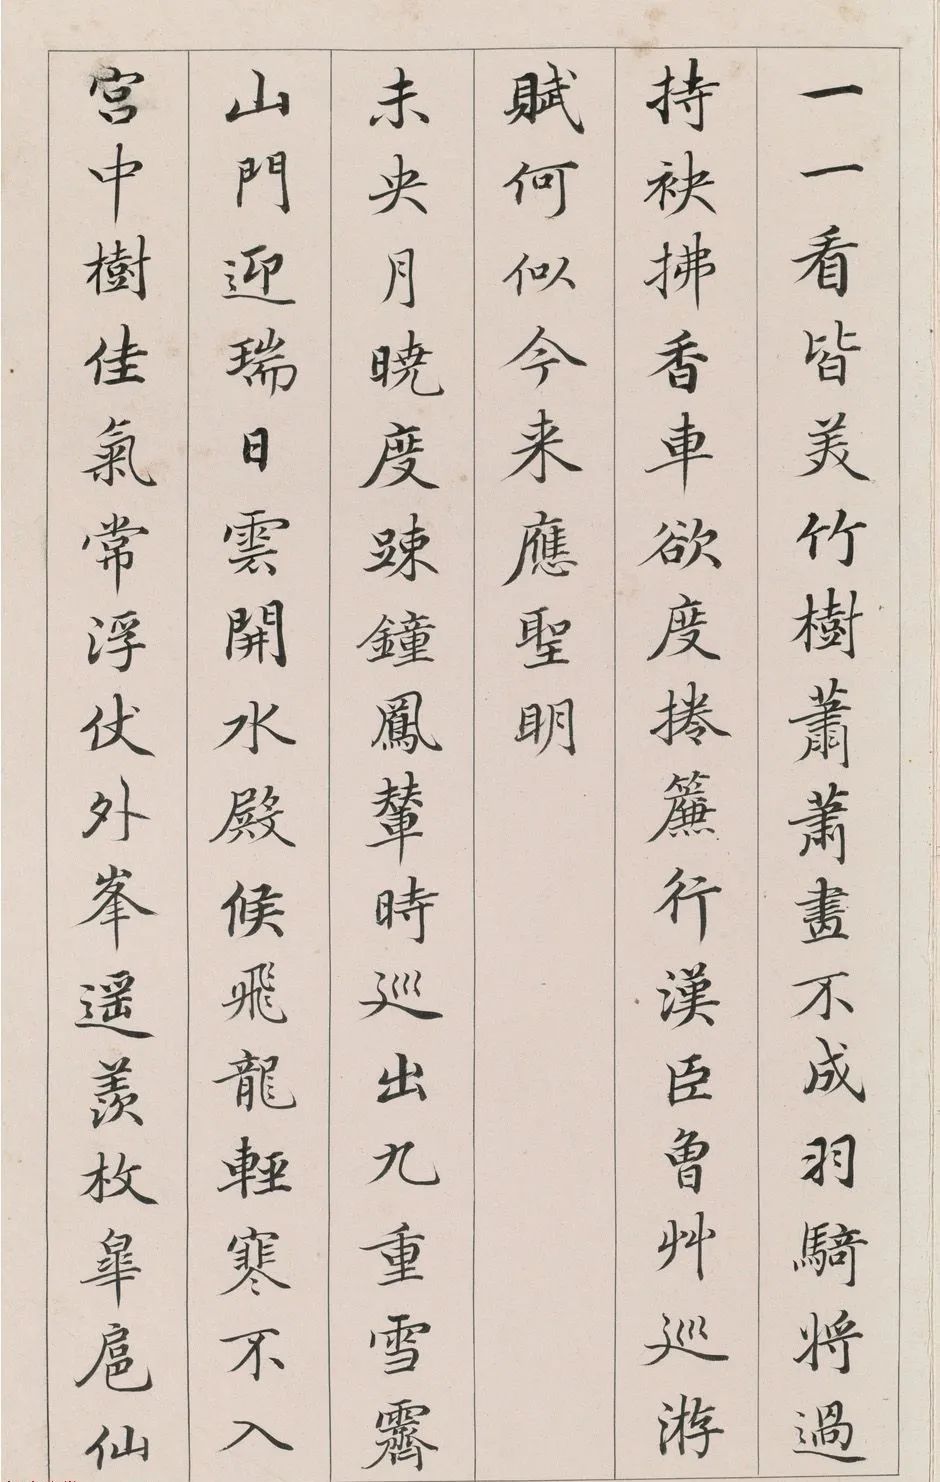 一一看皆美竹樹蕭蕭畫不成羽騎將過
持袂拂香車欲度捲簾行漢臣曾艸巡游
賦何似今来應聖明
未央月曉度踈鐘鳳輦時巡出九重雪霽
山門迎瑞日雲開水殿候飛龍輕寒不入
宮中樹佳氣常浮仗外峯遥羨枚皐扈仙